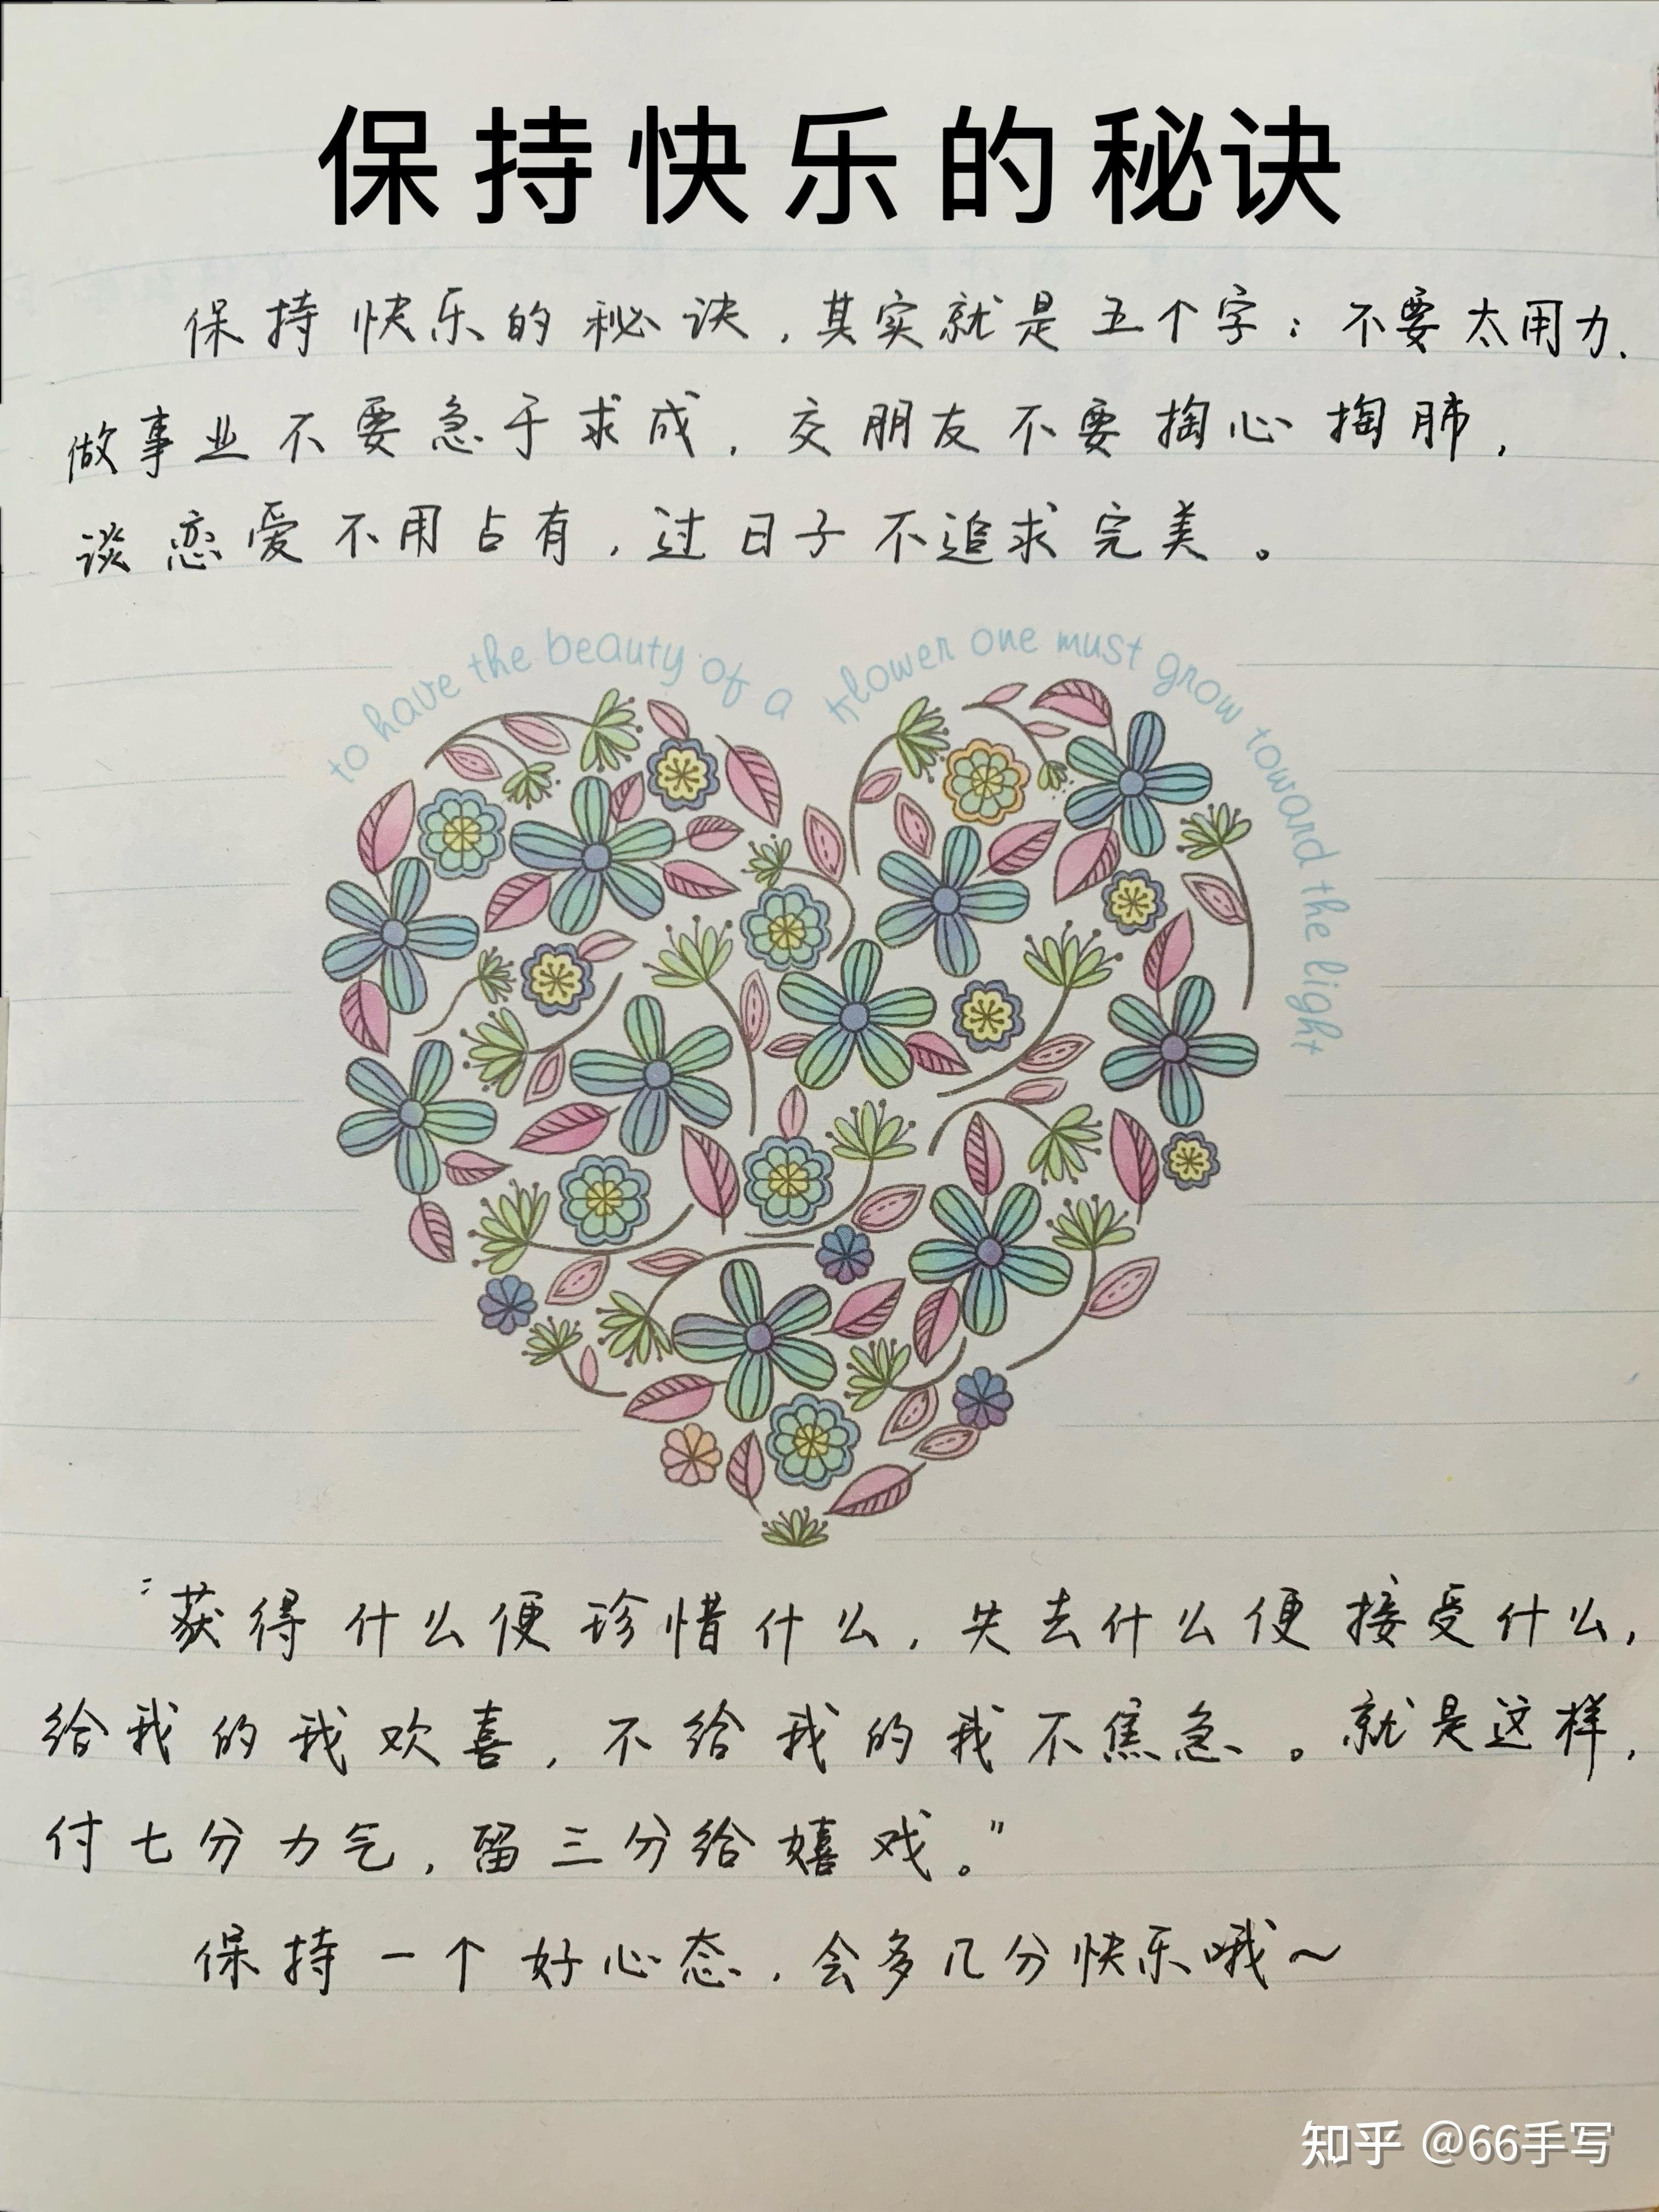 保持快乐的秘诀
保持快乐的秘诀，其实就是五个字：不要太用力.
做事业不要急于求成，交朋友不要掏心掏肺，
谈恋爱不用占有，过日子不追求完美。
to have the beauty of a flower one must grow toward the light
“获得什么便珍惜什么，失去什么便接受什么，
给我的我欢喜，不给我的我不焦急。就是这样，
付七分力气，留三分给嬉戏。”
保持一个好心态，会多几分快乐哦～
知乎 @66手写